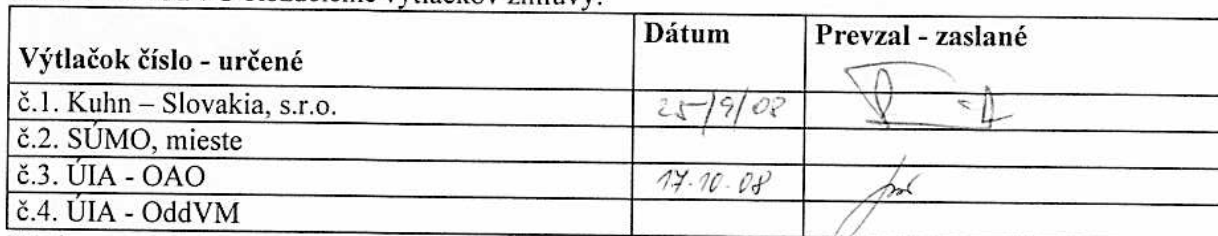 výtlačkov zmluvy:
Výtlačok číslo - určené Dátum Prevzal - zaslané
č.1. Kuhn – Slovakia, s.r.o. 25/9/08
č.2. SÚMO, mieste
č.3. ÚIA - OAO 17.10.08
č.4. ÚIA - OddVM